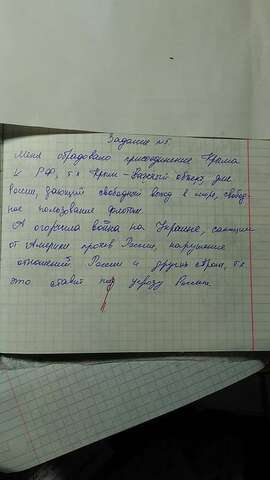 Задание №5
Меня обрадовано присоединение Крыма
к РФ, т.к Крым - Важный объект, для
России, дающий свободный вход в море, свобод-
ное пользование флотом.
А огорчила война на Украине, санкции
от Америки против России, нарушение
отношений России и других стран, т.к
это ставит под угрозу Россию